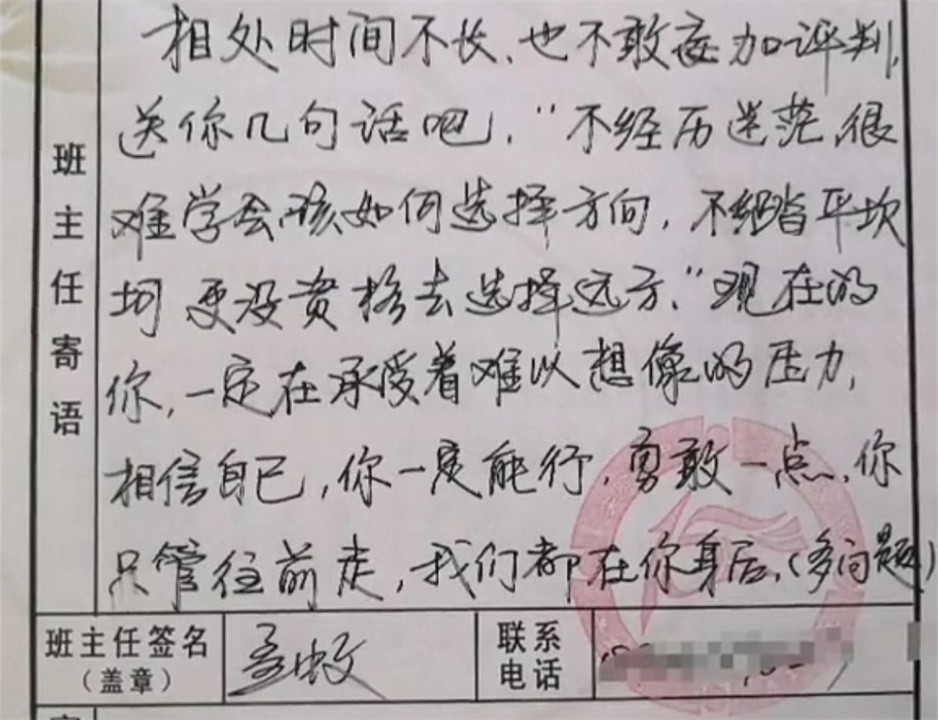 相处时间不长、也不敢妄加评判,
送你几句话吧,"不经历迷茫,很
难学会该如何选择方向,不踏平坎
坷 更没资格去选择远方."现在的
你,一定在承受着难以想像的压力,
相信自己,你一定能行,勇敢一点,你
只管往前走,我们都在你身后,(多问题)
班主任寄语
班主任签名
(盖章)
联系
电话